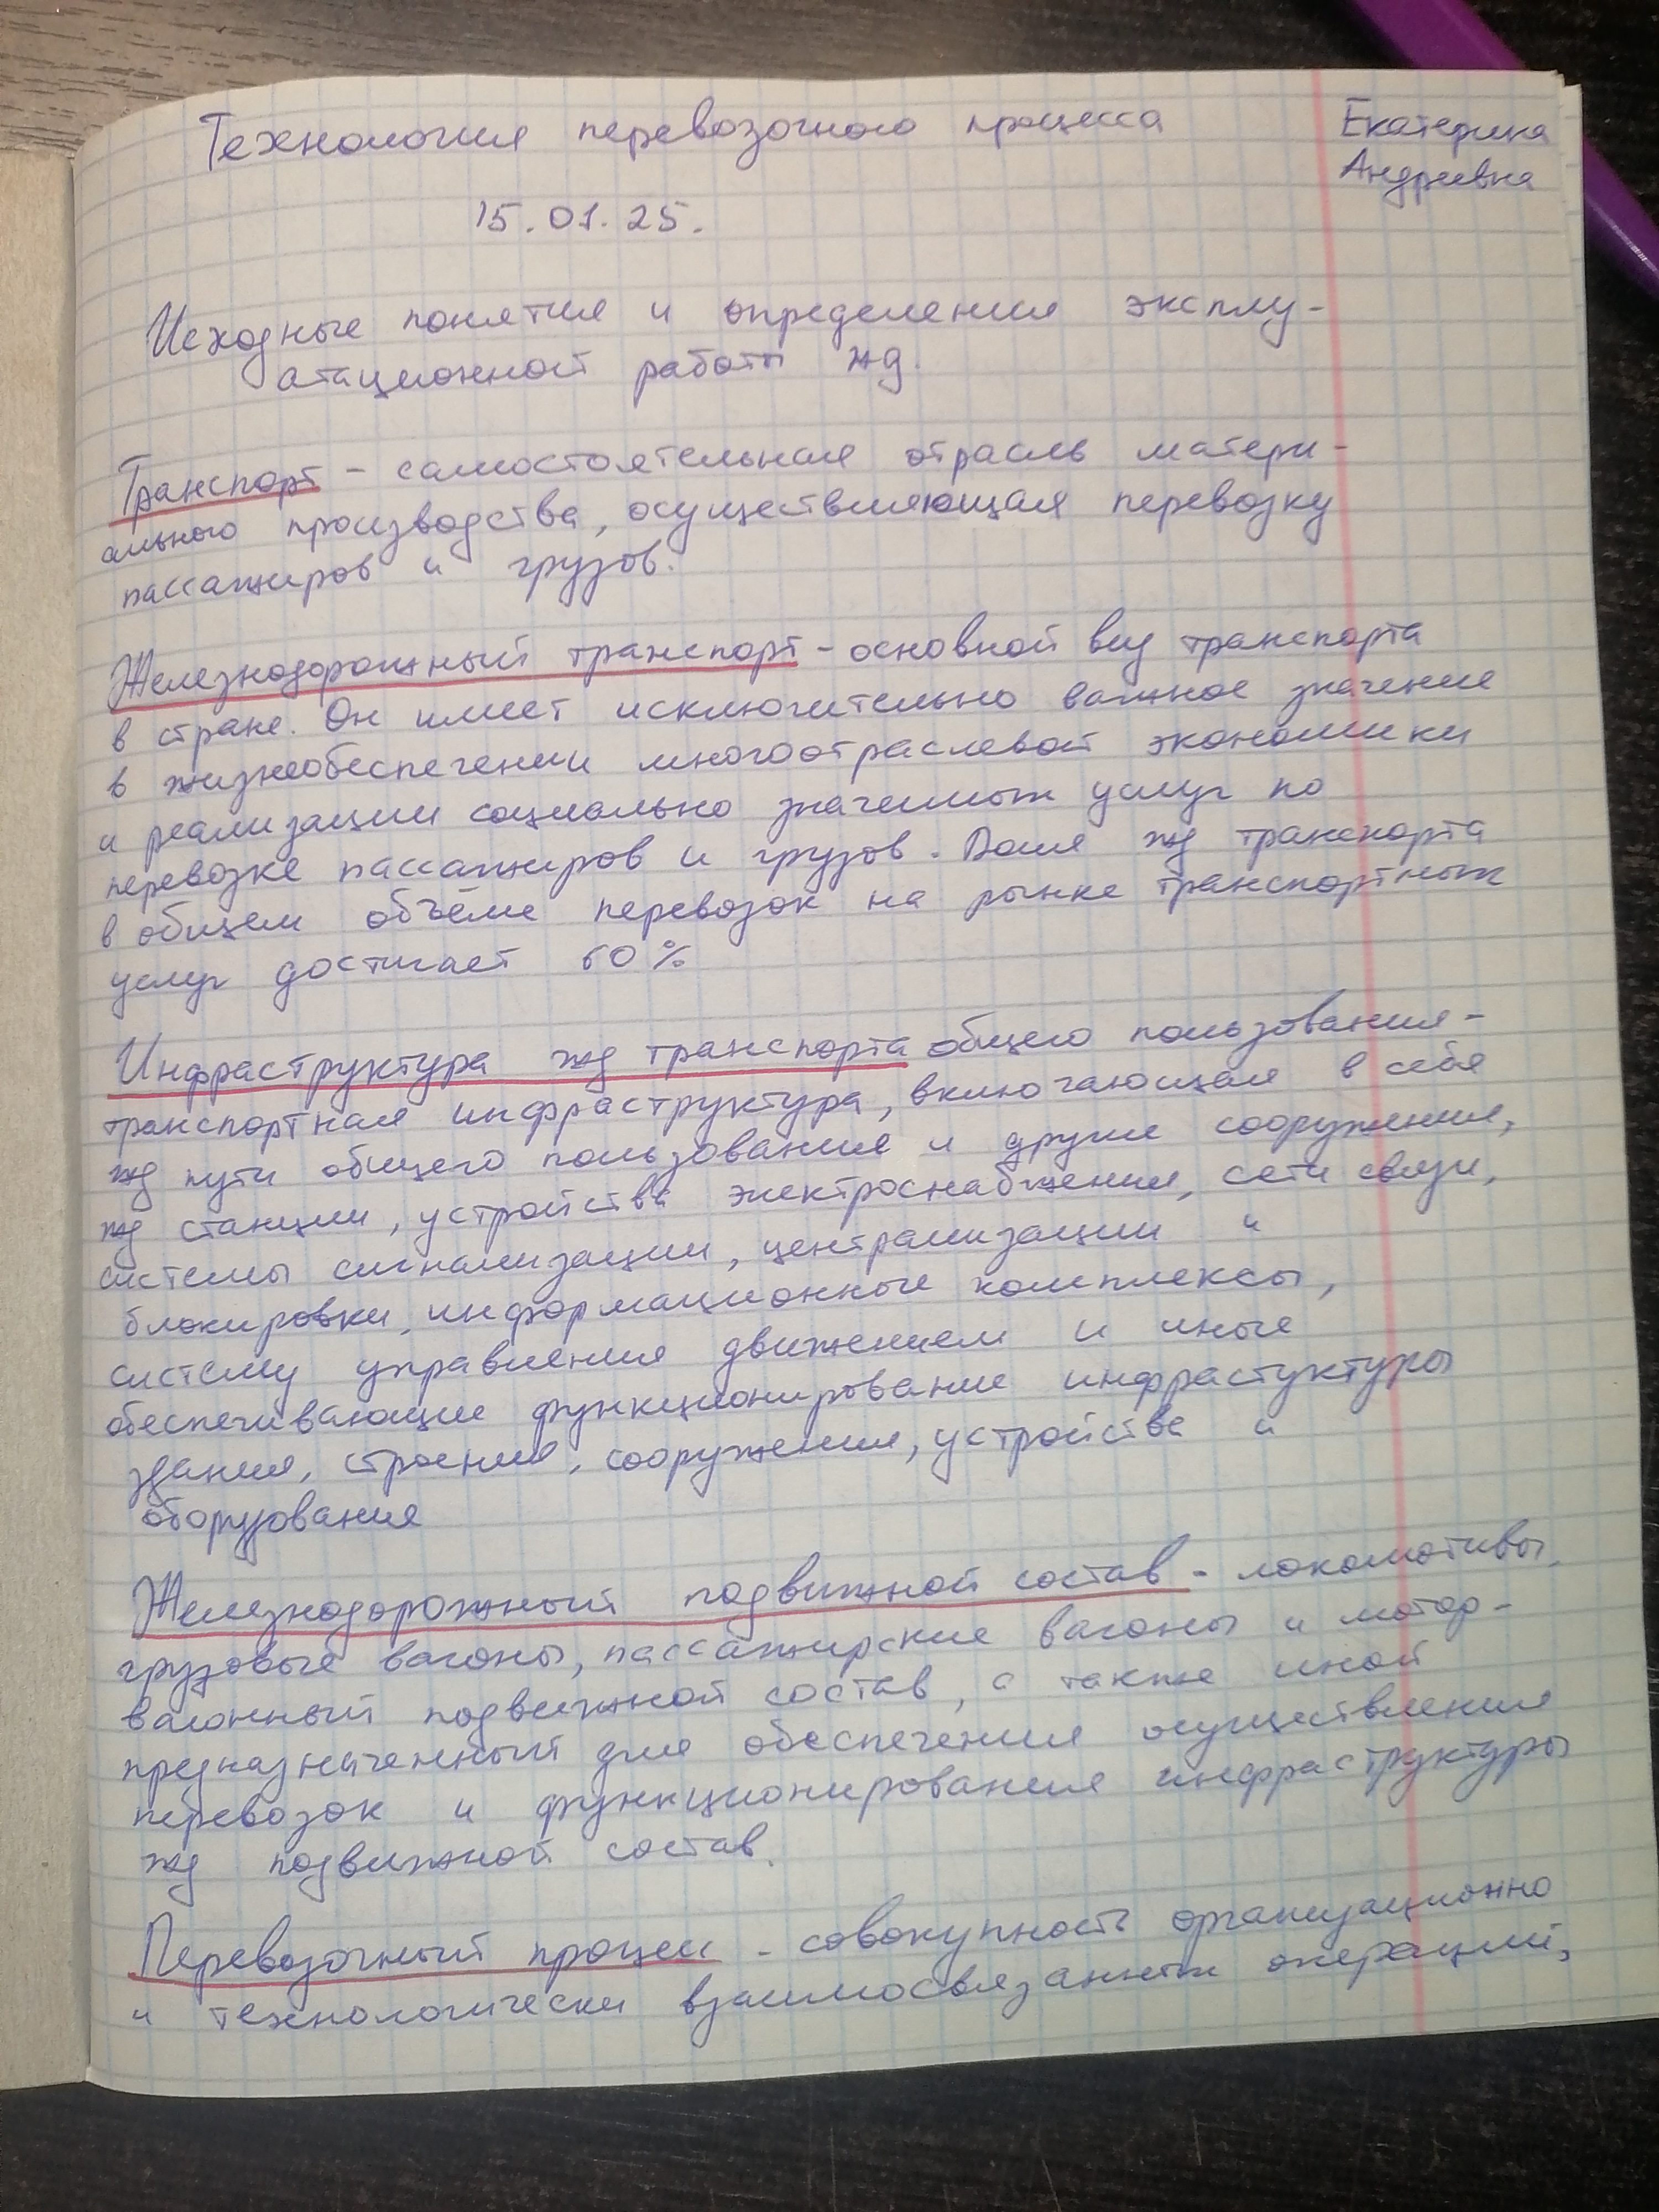 Технология перевозочного процесса
Екатерина
Андреевна
15.01.25.
Исходные понятия и определения эксплу-
атационной работы жд.
Транспорт - самостоятельная отрасль матери-
ального производства, осуществляющая перевозку
пассажиров и грузов.
Железнодорожный транспорт - основной вид транспорта
в стране. Он имеет исключительно важное значение
в жизнеобеспечении многоотраслевой экономики
и реализации социально значимых услуг по
перевозке пассажиров и грузов. Доля жд транспорта
в общем объёме перевозок на рынке транспортных
услуг достигает 60%
Инфраструктура жд транспорта общего пользования -
транспортная инфраструктура, включающая в себя
жд пути общего пользования и другие сооружения,
жд станции, устройства электроснабжения, сети связи,
системы сигнализации, централизации и
блокировки, информационные комплексы,
систему управления движением и иные
обеспечивающие функционирование инфрастуктуры
здания, строения, сооружения, устройства и
оборудования
Железнодорожный подвижной состав - локомотивы,
грузовые вагоны, пассажирские вагоны и мотор-
вагонный подвижной состав, а также иной
предназначенный для обеспечения осуществления
перевозок и функционирования инфраструктуры
жд подвижной состав.
Перевозочный процесс - совокупность организационно
и технологически взаимосвязанных операций,